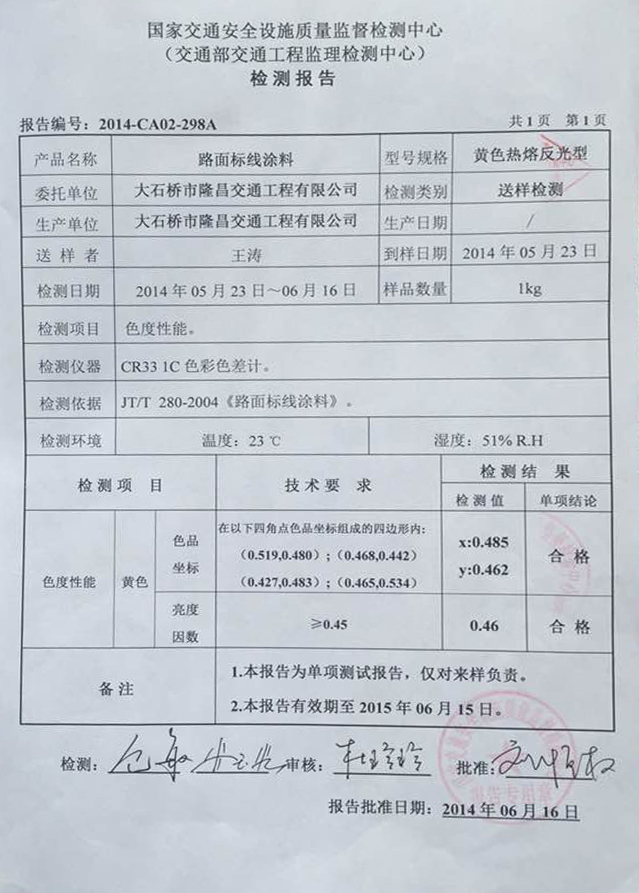 国家交通安全设施质量监督检测中心
（交通部交通工程监理检测中心）
检测报告
报告编号：2014-CA02-298A 共1页 第1页
产品名称 路面标线涂料 型号规格 黄色热熔反光型
委托单位 大石桥市隆昌交通工程有限公司 检测类别 送样检测
生产单位 大石桥市隆昌交通工程有限公司 生产日期 /
送样者 王涛 到样日期 2014年05月23日
检测日期 2014年05月23日～06月16日 样品数量 1kg
检测项目 色度性能。
检测仪器 CR33 1C 色彩色差计。
检测依据 JT/T 280-2004《路面标线涂料》。
检测环境 温度：23℃ 湿度：51% R.H
检测项目 技术要求 检测结果
检测值 单项结论
色度性能 黄色 色品坐标 在以下四角点色品坐标组成的四边形内：
（0.519,0.480）；（0.468,0.442）
（0.427,0.483）；（0.465,0.534）
x:0.485
y:0.462
合格
亮度因数 ≥0.45 0.46 合格
备注 1.本报告为单项测试报告，仅对来样负责。
2.本报告有效期至2015年06月15日。
检测： 审核： 批准：
报告专用章
报告批准日期：2014年06月16日